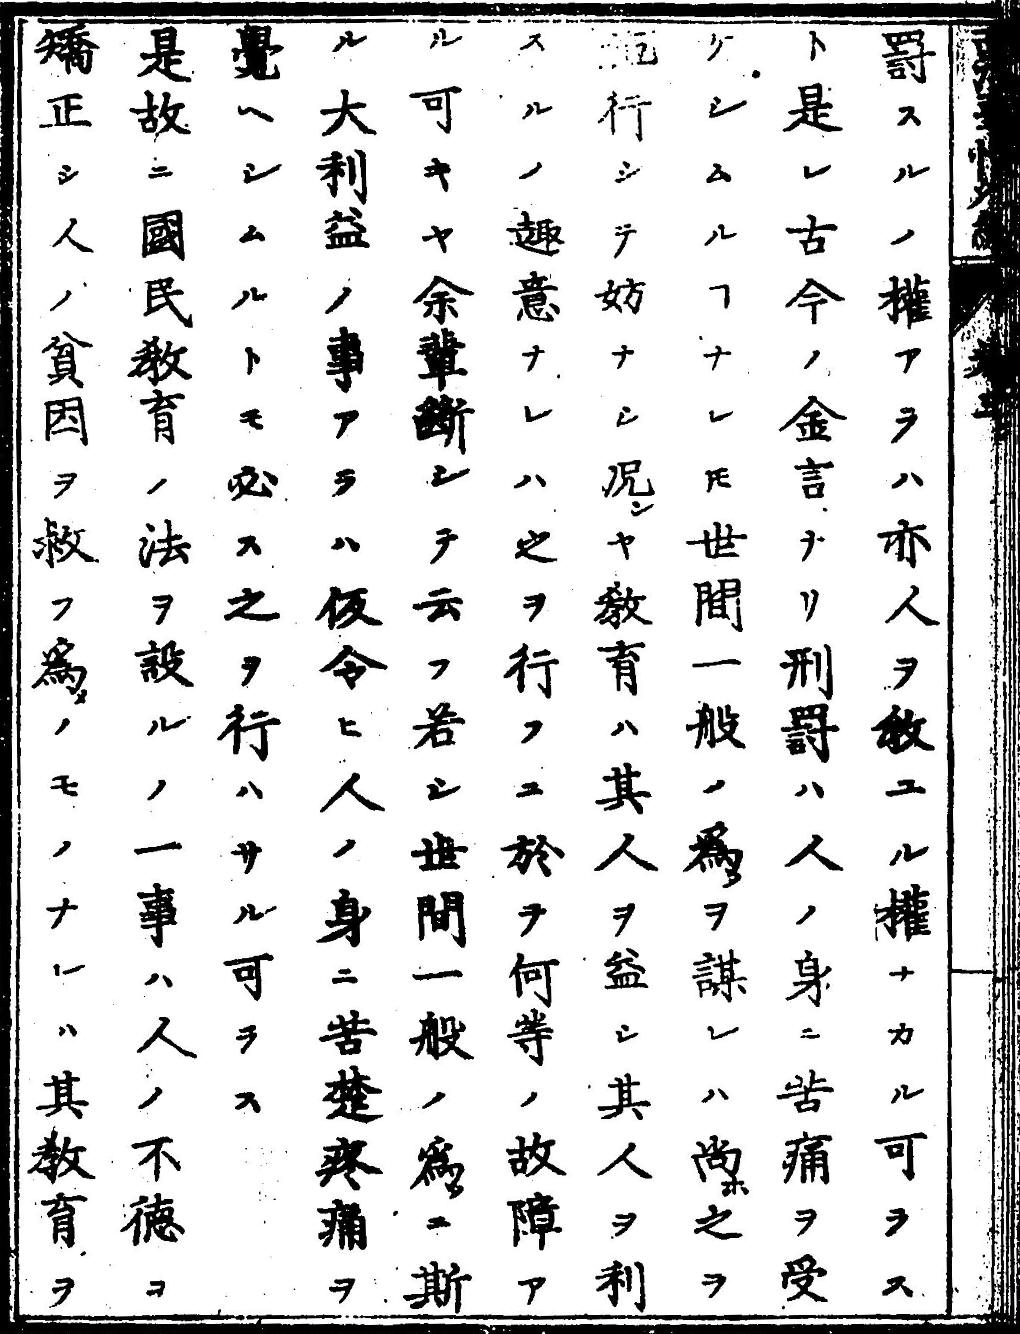 罰スルノ權アラハ亦人ヲ敎ユル權ナカル可ラス
ト是レ古今ノ金言ナリ刑罰ハ人ノ身ニ苦痛ヲ受
ケシムルヿナレ𪜈世間一般ノ爲メヲ謀レハ尚ホ之ヲ
施行シテ妨ナシ况シヤ敎育ハ其人ヲ益シ其人ヲ利
スルノ趣意ナレハ之ヲ行フニ於テ何等ノ故障ア
ル可キヤ余輩斷シテ云フ若シ世間一般ノ爲メニ斯
ル大利益ノ事アラハ仮令ヒ人ノ身ニ苦楚疼痛ヲ
覺ヘシムルトモ必ス之ヲ行ハサル可ラス
是故ニ國民敎育ノ法ヲ設ルノ一事ハ人ノ不德ヲ
矯正シ人ノ貧困ヲ救フ爲メノモノナレハ其敎育ヲ